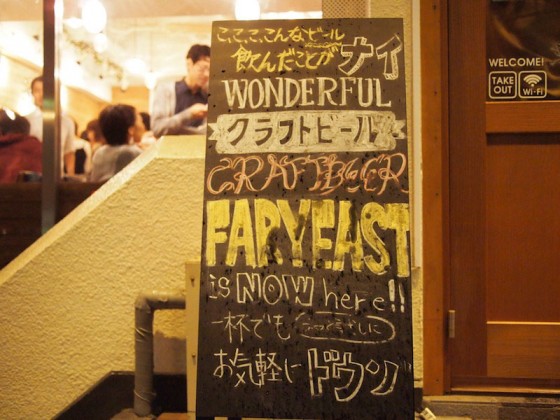 こ、こ、こ、こんなビール
飲んだことが
ナイ
WONDERFUL
クラフトビール
CRAFTBEER
FARYEAST
is NOW here!!
一杯でも
お気軽に ドウゾ
WELCOME!
TAKE OUT
Wi-Fi